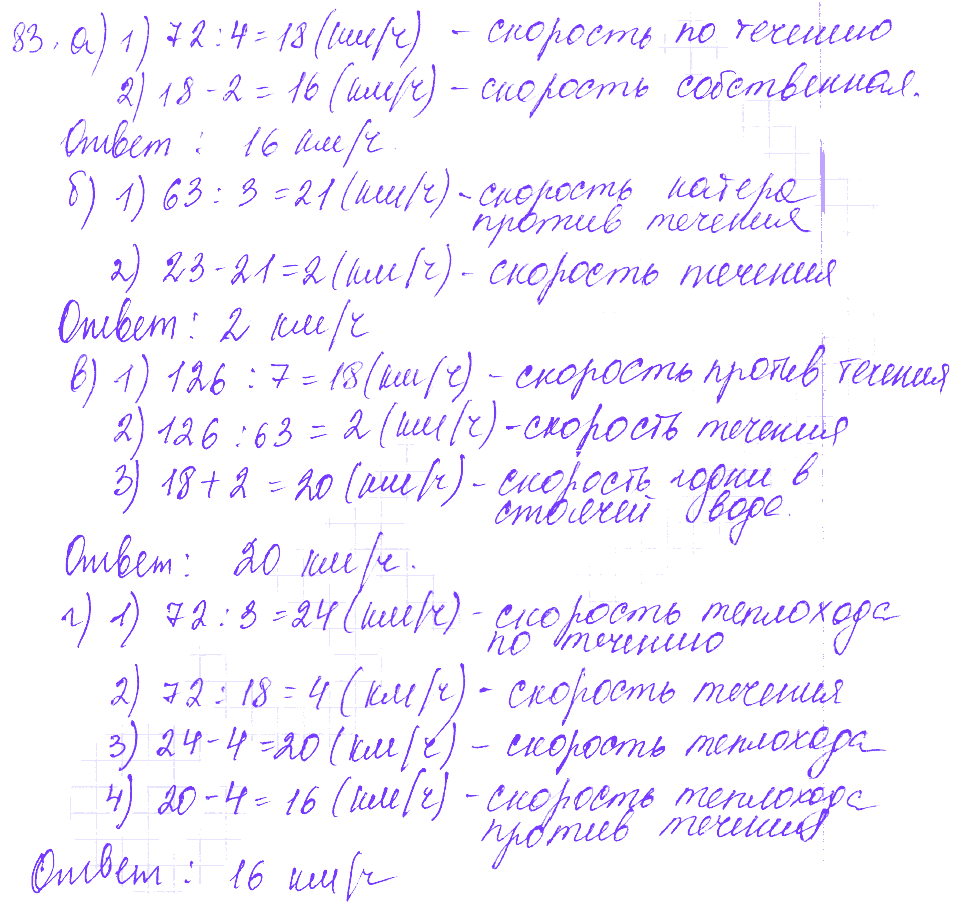 83. а) 1) 72 : 4 = 18 (км/ч) - скорость по течению
2) 18 - 2 = 16 (км/ч) - скорость собственная.
Ответ : 16 км/ч.
б) 1) 63 : 3 = 21 (км/ч) - скорость катера
против течения
2) 23 - 21 = 2 (км/ч) - скорость течения
Ответ : 2 км/ч
в) 1) 126 : 7 = 18 (км/ч) - скорость против течения
2) 126 : 63 = 2 (км/ч) - скорость течения
3) 18 + 2 = 20 (км/ч) - скорость лодки в
стоячей воде.
Ответ : 20 км/ч.
г) 1) 72 : 3 = 24 (км/ч) - скорость теплохода
по течению
2) 72 : 18 = 4 (км/ч) - скорость течения
3) 24 - 4 = 20 (км/ч) - скорость теплохода
4) 20 - 4 = 16 (км/ч) - скорость теплохода
против течения
Ответ : 16 км/ч